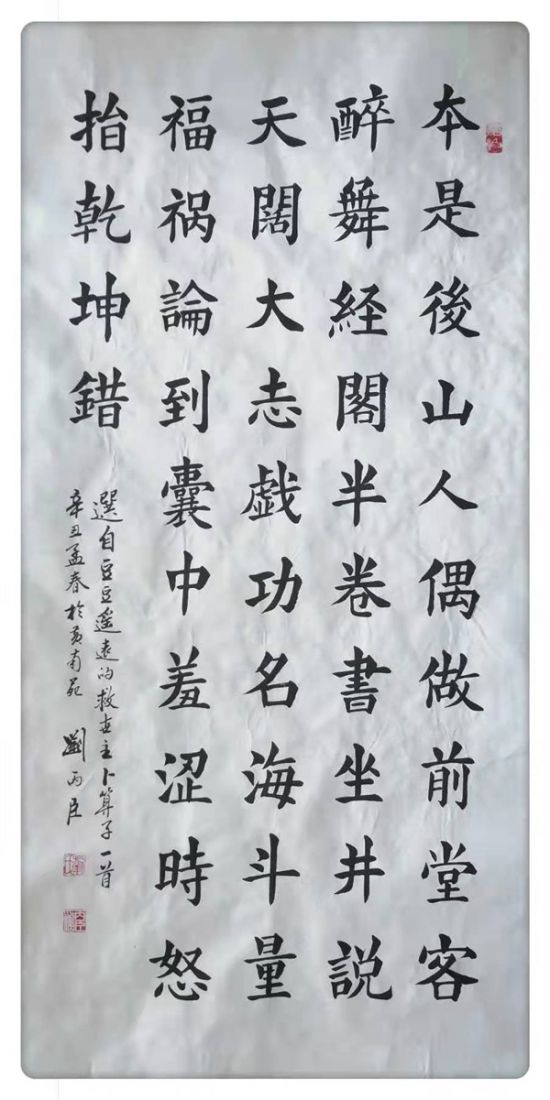 本是後山人偶做前堂客
醉舞経閣半卷書坐井説
天闊大志戯功名海斗量
福祸論到囊中羞涩時怒
抬乾坤錯
選自豆豆遥遠的救世主卜算子一首
辛丑孟春於南苑 劉丙臣